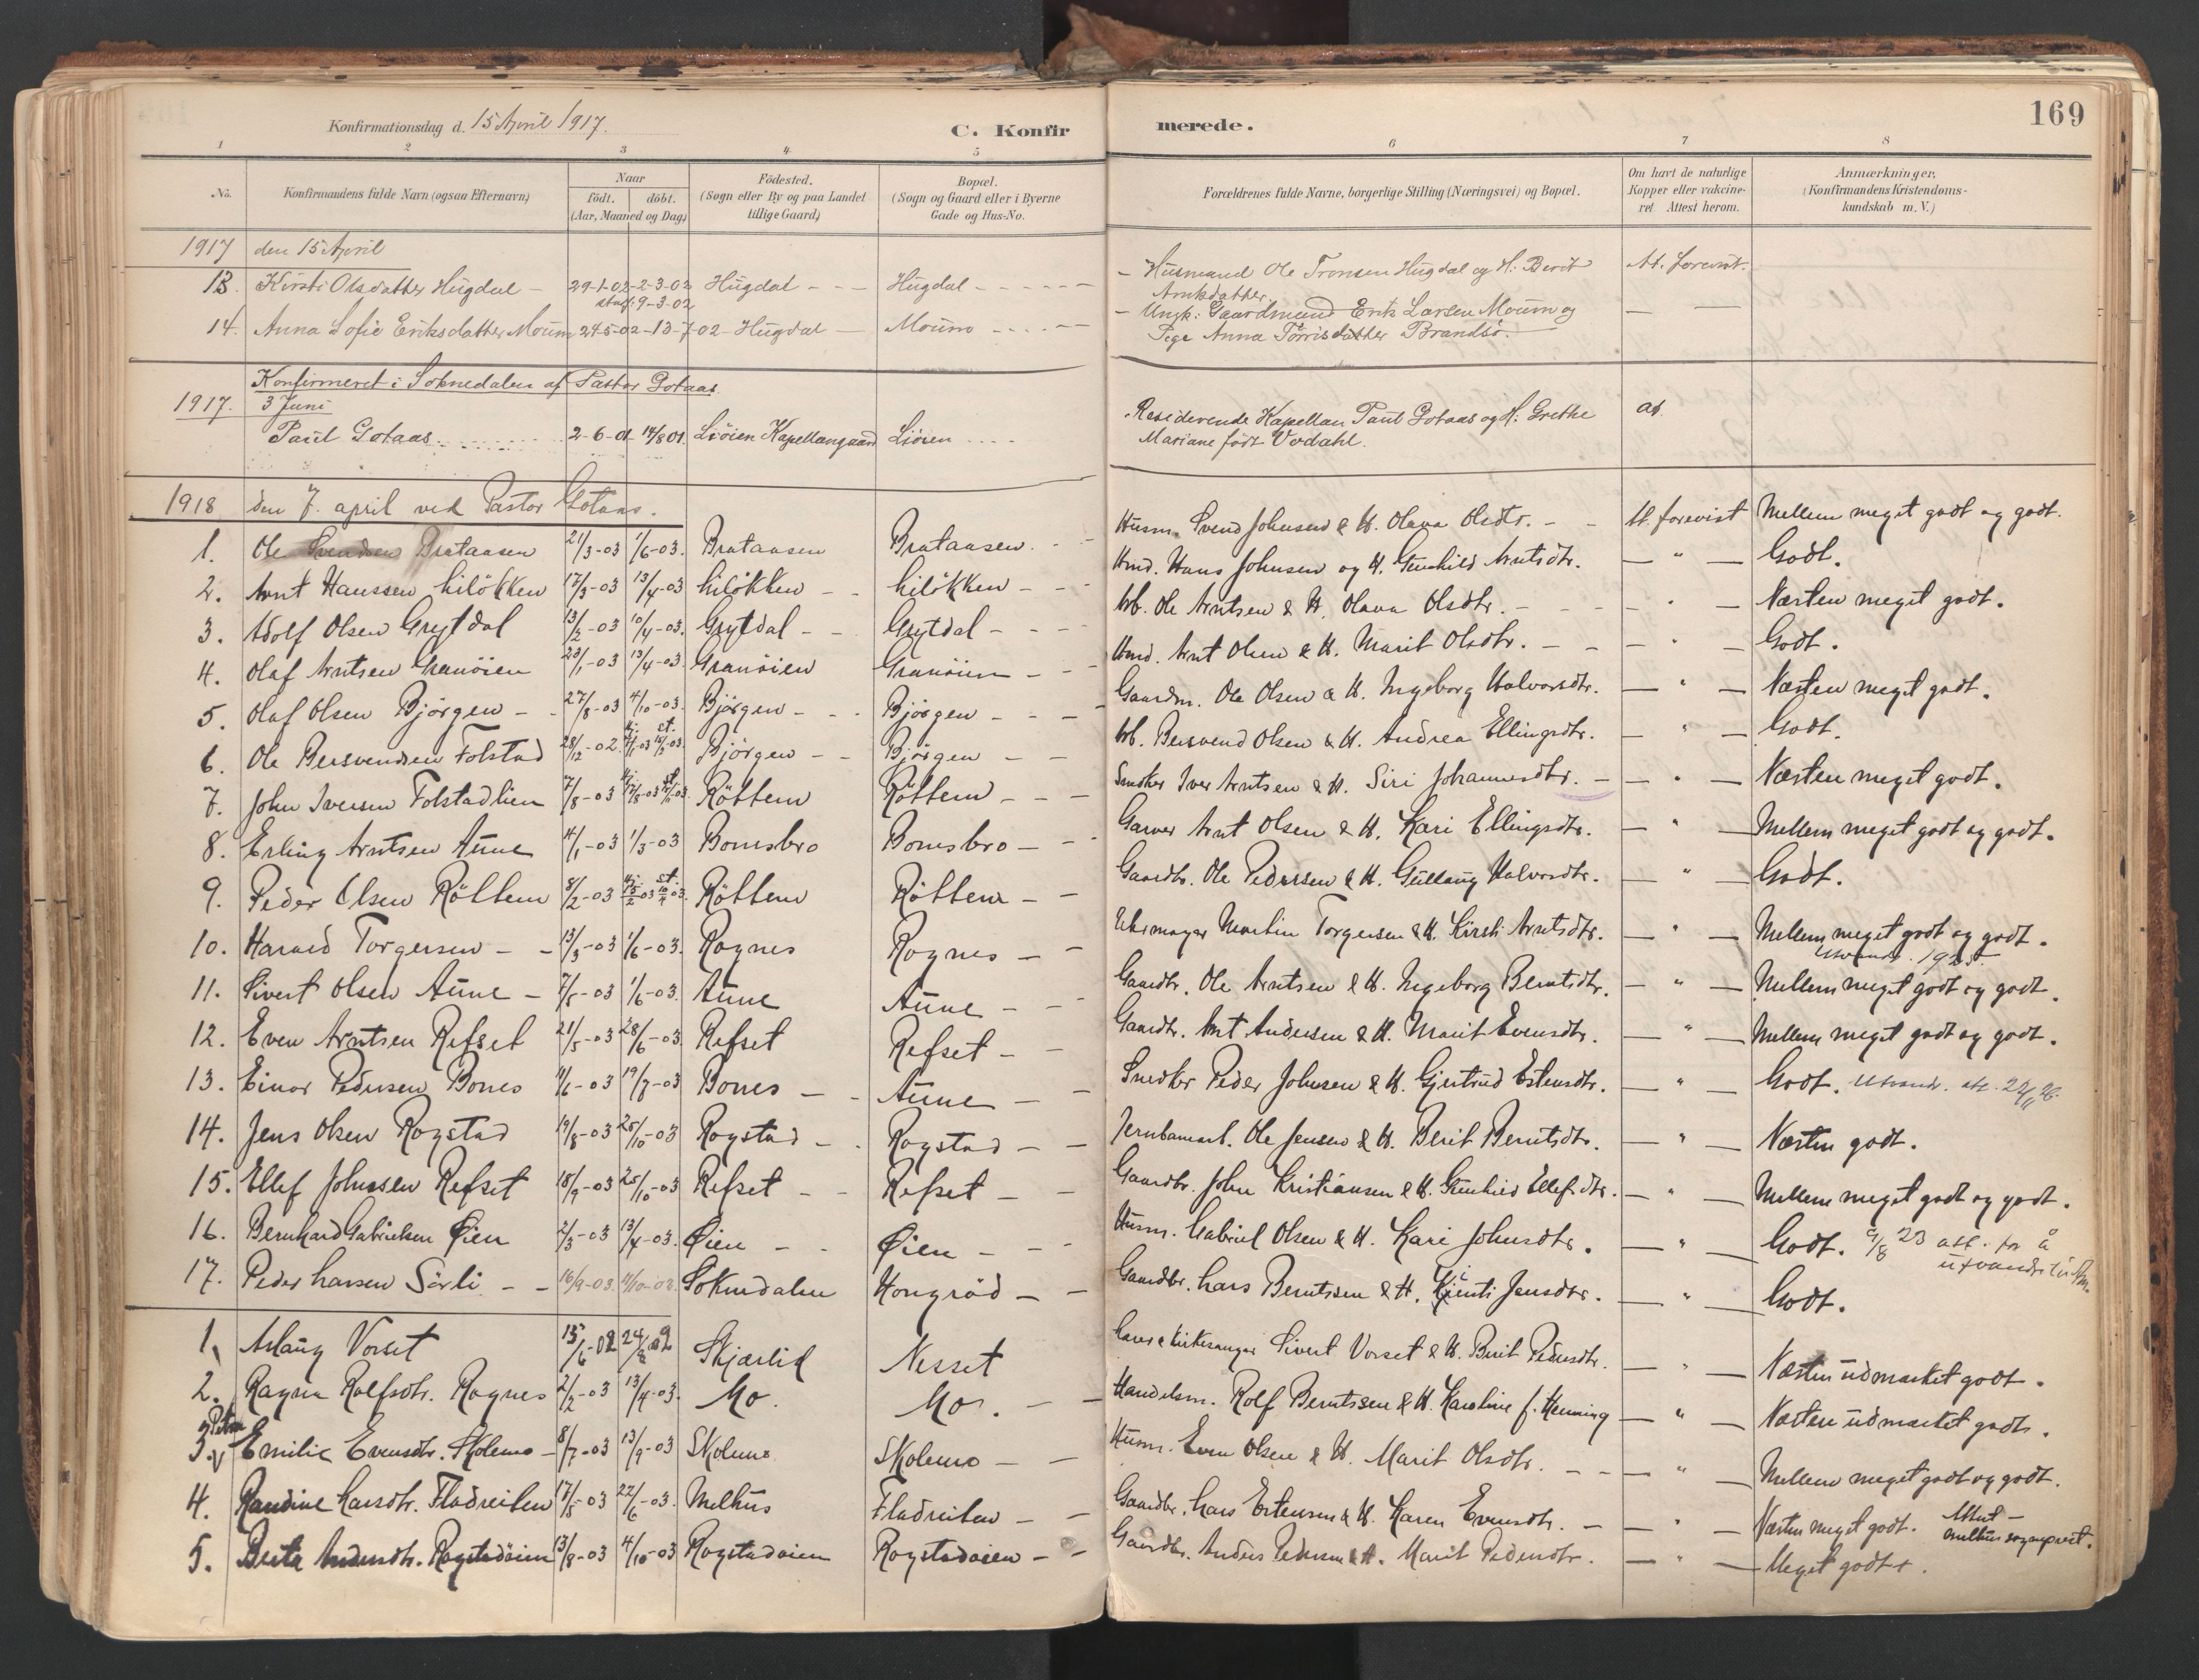 169
Konfirmationsdag d. 15 April 1917.
C. Konfirmerede.
1 2 3 4 5 6 7 8
No.
Konfirmandens fulde Navn (ogsaa Efternavn)
Naar
födt. döbt.
(Aar, Maaned og Dag)
Födested.
(Sogn eller By og paa Landet
tillige Gaard)
Bopæl.
(Sogn og Gaard eller i Byerne
Gade og Hus-No.
Forældrenes fulde Navne, borgerlige Stilling (Næringsvei) og Bopæl.
Om havt de naturlige
Kopper eller vakcine-
ret Attest herom.
Anmærkninger,
(Konfirmandens Kristendoms-
kundskab m. V.)
1917 den 15 April
13. Kirsti Olsdatter Hugdal - 29-1-02 - 2-3-02 Hugdal - - - Hugdal - - - - - - Husmand Ole Tronsen Hugdal og H: Berit At. forevist.
stadf: 9-3-02 Arntsdatter.
14. Anna Sofie Eriksdatter Moum 24-5-02 - 13-7-02 Hugdal - Moum - - - - - Ungk: Gaardmand Erik Larsen Moum og — —
Pige Anna Törrisdatter Brandsö.
Konfirmeret i Soknedalen af Pastor Gotaas
1917. 3 Juni
Paul Gotaas 2-6-01 14/8 01. Liöien Kapellangaard Liöien . . . . Residerende Kapellan Paul Gotaas og H: Grethe at.
Mariane født Vodahl.
1918 den 7. april ved Pastor Gotaas.
1. Ole Svendsen Brataasen 21/3-03 1/6-03. Brataasen Brataasen. - - Husm. Svend Johnsen & H. Olava Olsdtr. - - At. forevist Mellem meget godt og godt.
2. Arnt Hanssen Liløkken 17/3-03 13/4-03 Liløkken - - Liløkken - - Hmd. Hans Johnsen og H. Gunhild Arntsdtr. — " — Godt.
3. Adolf Olsen Grytdal 13/2-03 10/4-03. Grytdal - - Grytdal - - - Arb. Ole Arntsen & H. Olava Olsdtr. - - - " — Næsten meget godt.
4. Olaf Arntsen Granøien 23/1-03 13/4-03. Granøien Granøien - - Hmd. Arnt Olsen & H. Marit Olsdtr. - - - " — Godt.
5. Olaf Olsen Bjørgen - - 27/8-03 4/10-03. Bjørgen - - Bjørgen - - - Gaardm. Ole Olsen & H. Ingeborg Halvorsdtr. — " — Næsten meget godt.
6. Ole Bersvendsen Folstad 28/12-02. Bjørgen - - Bjørgen - - Arb. Bersvend Olsen & H. Andrea Ellingsdtr. — " — Godt.
7. John Iversen Folstadlien 7/8-03 Røttem Røttem - - - Snedker Iver Arntsen & H. Siri Johannesdtr. - — " — Næsten meget godt.
8. Erling Arntsen Aune 14/1-03 1/3-03 Bonesbro Bonesbro - - Garver Arnt Olsen & H. Kari Ellingsdtr. — " — Mellem meget godt og godt.
9. Peder Olsen Røttem 8/2-03 Røttem Røttem - - Gaardbr. Ole Pedersen & H. Gullaug Halvorsdtr. — " — Godt.
10. Harald Torgersen - - 13/3-03 1/6-03. Rognes Rognes - - Uhrmager Martin Torgersen & H. Kirsti Arntsdtr. — " — Mellem meget godt og godt.
11. Sivert Olsen Aune - 7/5-03 1/6-03. Aune Aune - - Gaardbr. Ole Arntsen & H. Ingeborg Berntsdtr. — " — Mellem meget godt og godt.
12. Even Arntsen Refset 21/5-03 28/6-03. Refset Refset - - Gaardbr. Arnt Andersen & H. Marit Evensdtr. — " — Mellem meget godt og godt.
13. Einar Pedersen Bones 11/6-03 19/7-03 Bones - - Aune - - Snedkr Peder Johnsen & H. Gjertrud Estensdtr. — " — Godt. Utvandr. att. 24/11 26.
14. Jens Olsen Rogstad 19/8-03 25/10-03 Rogstad - - Rogstad - - Jernbanearb. Ole Jensen & H. Berit Berntsdtr. — " — Næsten godt.
15. Ellef Johnssen Refset 18/9-03 25/10-03 Refset - - Refset - - Gaardbr. John Kristiansen & H. Gunhild Ellefsdtr. — " — Mellem meget godt og godt.
16. Bernhard Gabrielsen Øien 2/3-03 13/4-03. Øien - - Øien - - - Husm. Gabriel Olsen & H. Kari Johnsdtr. — " — Godt. 9/8 23 att. for å
utvandre til Am.
17. Peder Larsen Sörli - - 16/9-03. 11/10-03. Soknedalen Hongrød - - Gaardbr. Lars Berntsen & H. Jensdtr. — " — Godt.
1. Aslaug Vorset 15/6-02 24/8 02 Skjærlid Nesset Lærer & Kirkesanger Sivert Vorset & H. Berit Pedersdtr. — " — Næsten udmærket godt.
2. Ragna Rolfsdtr. Rognes 2/2-03 13/4-03. Mo. Mo. - - Handelsm. Rolf Berntssen & H. Karoline f. Henning — " — Næsten udmærket godt.
3. Petra Emilie Evensdtr. Skolemo - 8/7-03 13/9-03 Skolemo Skolemo - - Husm. Even Olsen & H. Marit Olsdtr. - - — " — Mellem meget godt og godt.
4. Randine Larsdtr. Fladreiten 17/5-03 22/6-03. Melhus Fladreiten - - Gaardbr. Lars Estensen & H. Karen Evensdtr. - — " — Næsten meget godt. Attest -
Melhus sogneprest.
5. Berta Andersdtr. Rogstadøien 13/8-03 4/10-03 Rogstadøien Rogstadøien - - Gaardbr. Anders Pedersen & H. Marit Pedersdtr. — " — Meget godt +.